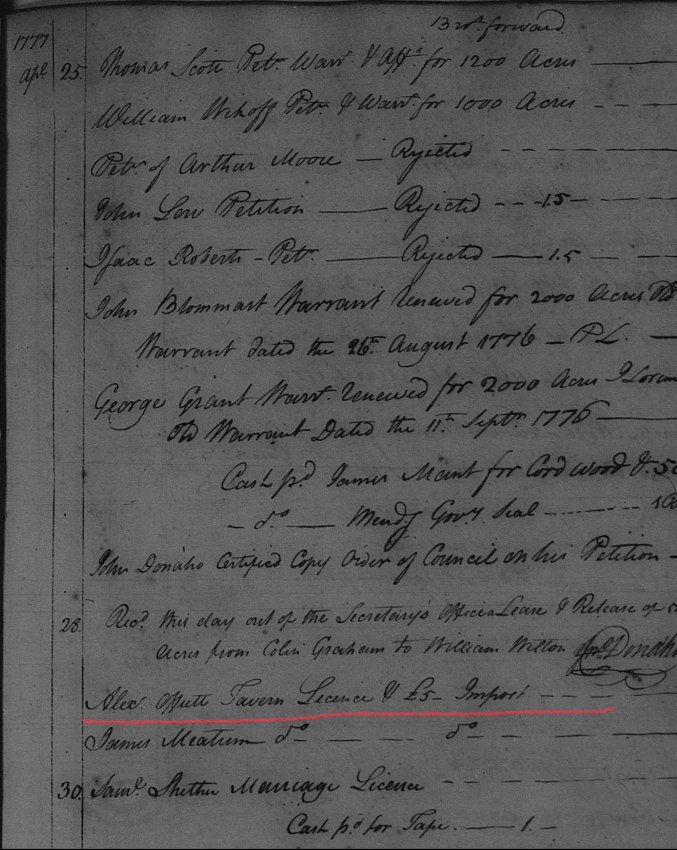 Brot. forward
1777
Apl. 25. Thomas Scott Petn. Warrt. & Afft. for 1200 Acres
William Wikoff Petn. & Warrt. for 1000 Acres
Petn. of Arthur Moore — Rejected
John Low Petition — Rejected - - - 1.5 —
Isaac Roberts - Petn. — Rejected — 1.5
John Blommart Warrant Renewed for 2000 Acres Old
Warrant dated the 26th. August 1776 — P L. —
George Grant Warrt. Renewed for 2000 Acres
Old Warrant Dated the 11th. Septr. 1776
Cash pd. James Mant for Cord wood
— do. — Mendg Govrs. Seal
John Donaho Certified Copy Order of Council on his Petition -
28. Recd. this day out of the Secretary's Office a Lease & Release of
acres from Colin Graham to William Wilton
Alexr. Offutt Tavern Licence & £5 - Impost
James Meatum do. — do.
30. Saml. Marriage Licence
Cash pd. for Tape. — 1. —